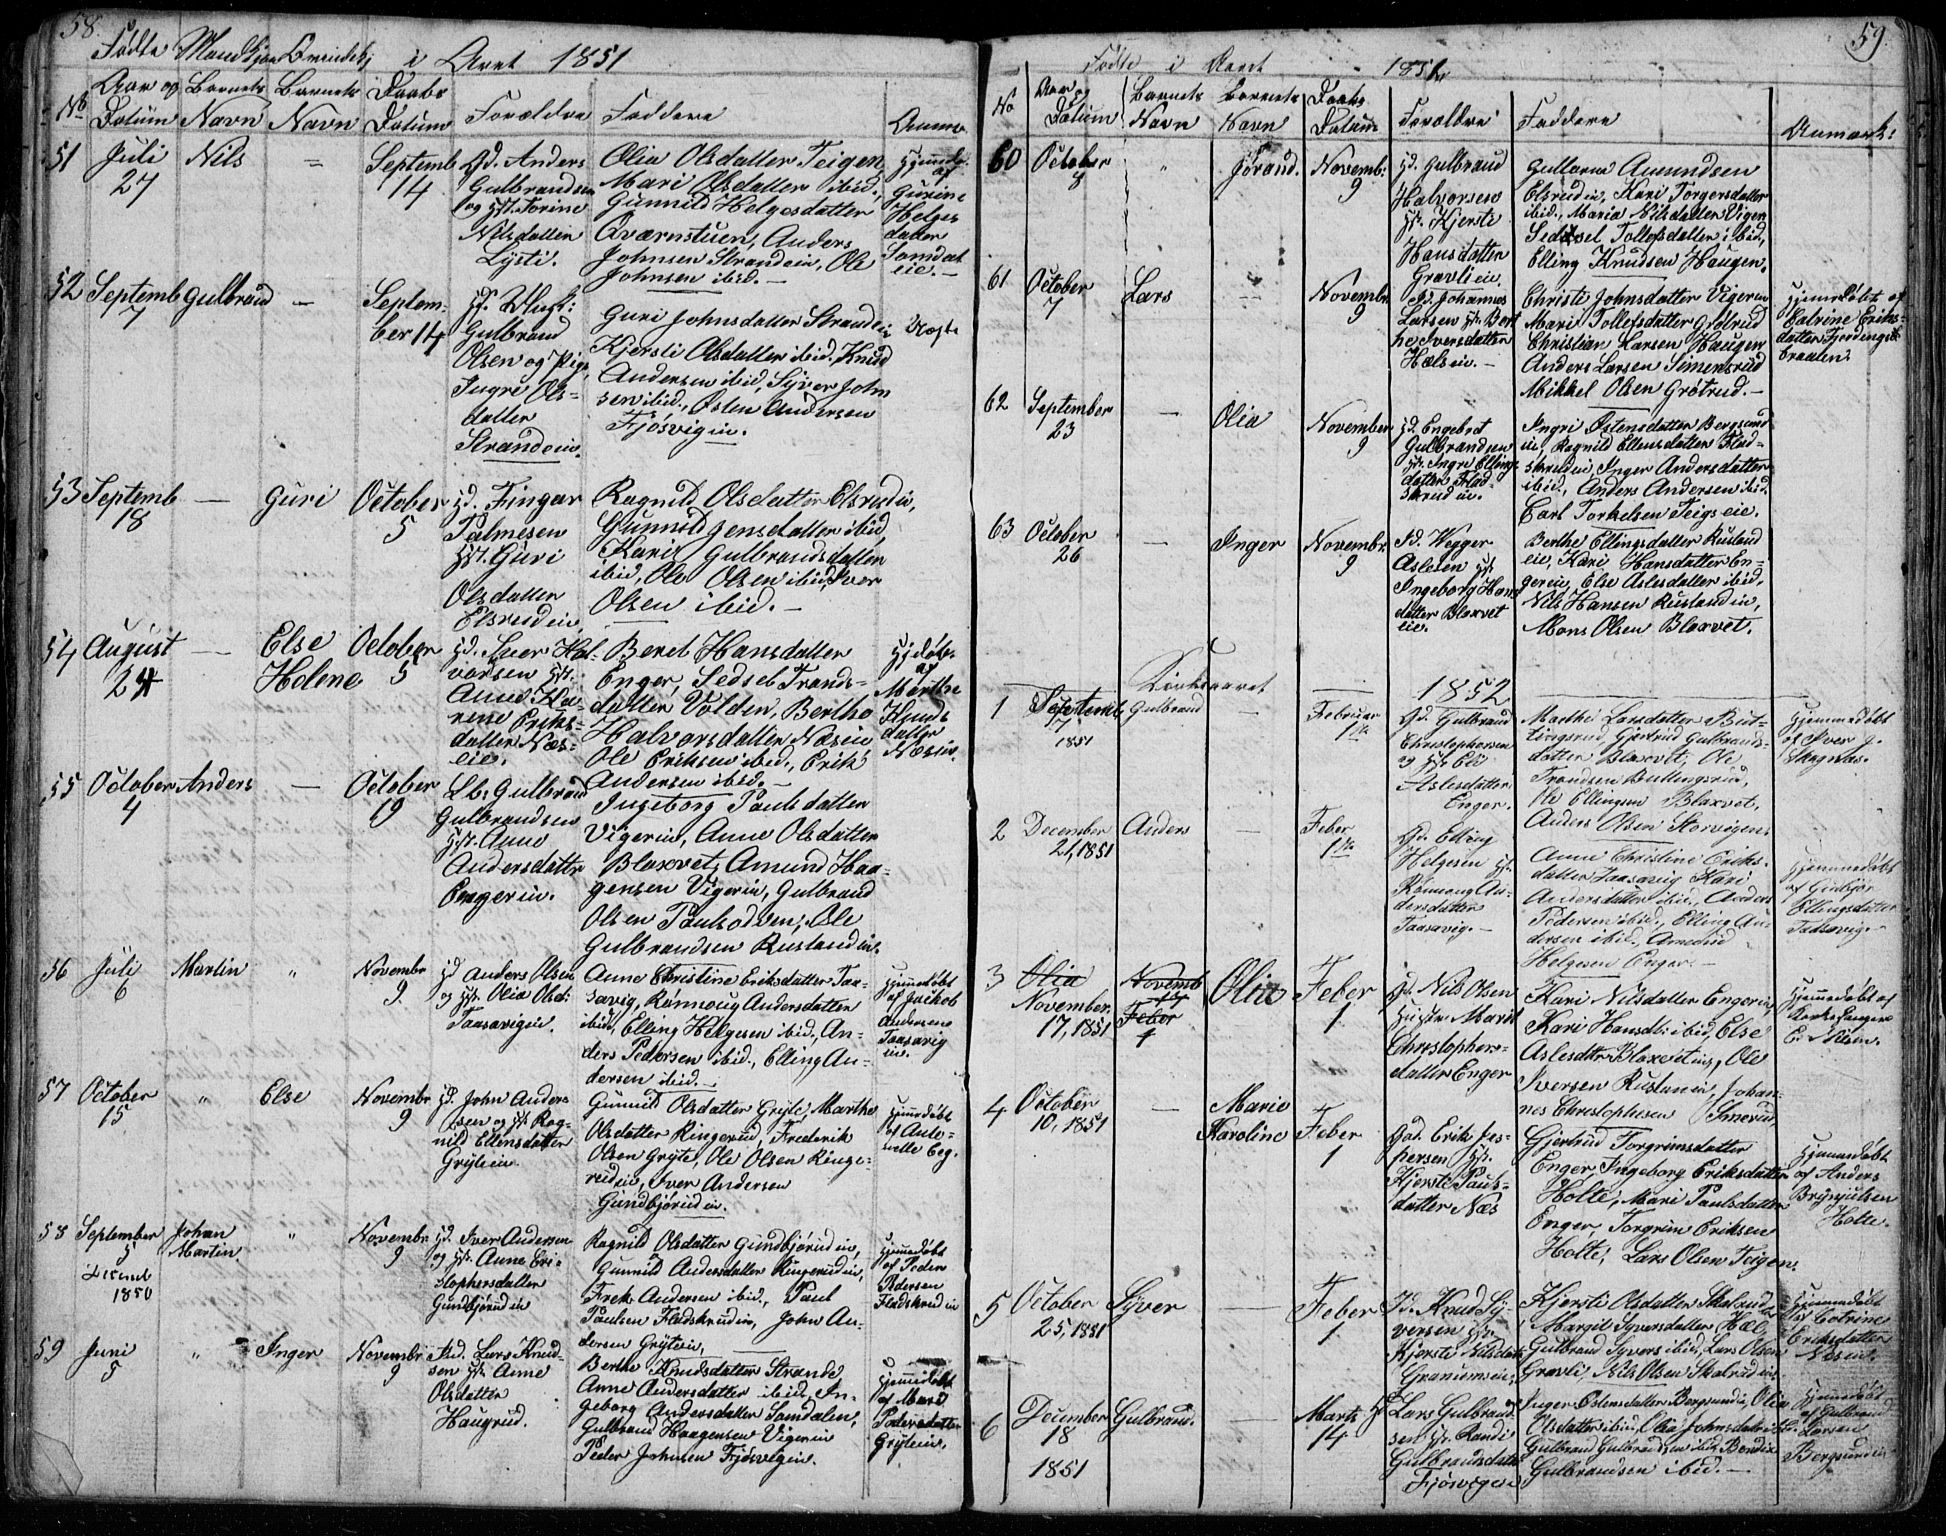 58.
Födte Mandkjøn Qvindekj i Aaret 1851
No
Aar og Datum
Barnets Navn
Barnets Navn
Daabs Datum
Forældre
Faddere
Anmm.
51
Juli 27
Nils
=
Septemb 14
Gd. Anders
Gulbrandsen
og Hst. Torine
Nilsdatter
Lysti.
Olia Olsdatter Teigen,
Mari Olsdatter ibid,
Gunnild Helgesdatter
Qværnstuen, Anders
Johnsen Strandein, Ole
Johnsen ibid. —
Hjemdø.
af
Gurine
Helges
datter
Samdal
eie. —
52
Septemb 7
Gulbrand
—
Septem-
ber 14
Gulbrand
Olsen og Pige
Ingri Ols=
datter
Strandein.
Guri Johnsdatter Strandei
Kjersti Olsdatter ibid, Knud
Andersen ibid, Syver John
sen ibid, Østen Andersen
Fjøsvigein.
Uægte
53
Septemb 18
—
Guri
October 5
Hd. Fingar
Palmesen
Hst. Guri
Olsdatter
Elsrudein.
Ragnild Olsdatter Elsrudein,
Gunnild Jensdatter ibid,
Kari Gulbrandsdatter
ibid, Ole Olsen ibid, Iver
Olsen ibid. —
54
August 24
—
Else
Helene
October 5
Hd. Iver Hal-
vorsen Hst.
Anne Ka-
rine Eriks-
datter Næs-
eie.
Beret Hansdatter
Enger, Sedsel Trands-
datter Volden, Berthe
Halvorsdatter Næsein,
Ole Eriksen ibid., Erik
Andersen ibid. —
Hjdøbt
af
Marthe
Knuds
datter
Næsein.
55
October 4
Anders
—
October 19
Lb. Gulbrand
Gulbrandsen
Hst. Anne
Andersdatter
Engerin.
Ingeborg Paulsdatter
Vigerin, Anne Olsdatter
Bloxvet, Amund Haa-
gensen Vigerin, Gulbrand
Olsen Paulsodven, Ole
Gulbrandsen Rustandin.
56
Juli 6
Martin
"
Novembr 9.
Hd Anders Olsen
og Hst. Olia Olsd:
Taasavigein.
Anne Christine Eriksdatter Taa-
savig, Rønnoug Andersdatter
ibid, Elling Helgesen ibid., An-
ders Pedersen ibid., Elling An-
dersen ibid. —
Hjemmedøbt
af Jackob
Andersen
Taasavig
in.
57
October 15
"
Else
Novembr 9
Hd. John Anders
sen og Hst. Rag-
nild Ellensdatter
Grytein.
Gunnild Olsdatter Gryte, Marthe
Olsdatter Ringerud, Frederik
Olsen Gryte, Ole Olsen Ringe-
rudin, Iver Andersen
Gundbjørudin.
Hjemmedøbt
af Ante-
nette Eeg.
58
September 5
1850
Johan
Martin
"
Novembr 9
Hd. Iver Andersen
og Hst. Anne Cri-
stophersdatter
Gundbjørudin
Ragnild Olsdatter Gundbjørudin,
Gunnild Andersdatter Ringerudin,
Fredk. Andersen ibid., Paul
Paulsen Fladskrudin, John An-
dersen Grytein,
Hjemmedøbt
af Peder
Pedersen
Fladskrudin
59
Juni 5
"
Inger
Novembr 9
Ind. Lars Knud-
sen Hst. Anne
Olsdatter
Haugrud.
Berthe Knudsdatter Strande
Anne Andersdatter ibid., In-
geborg Andersdatter Samdalen,
Gulbrand Haagensen Vigerin
Peder Johnsen Fjøsvigein.
Hjemmedøbt
af Mari
Pedersdatter
Grytein.
59.
Fødte i Aaret 1851
No
Aar og Datum
Barnets Navn
Barnets Navn
Daabs Datum
Forældre
Faddere
Anmærk:
60
October 8
"
Jørand.
Novemb: 9
Hd. Gulbrand
Halvorsen
Hst. Kjersti
Hansdatter
Gravliein.
Gulbrand Amundsen
Elsrudin, Kari Torgersdatter
ibid., Maria Nilsdatter Vigern
Sedsel Tollefsdatter ibid,
Elling Knudsen Haugen.
61
October 7
Lars
—
Novembr 9
Id. Johannes
Larsen Hst. Bert
he Iversdatter
Hælsein. —
Christi Johnsdatter Vigerin
Mari Tollefsdatter Grøtrud
Christian Larsen Haugen
Anders Larsen Simensrud
Mikkel Olsen Grøtrud. —
Hjemmedøbt af
Catrine Eriks-
datter Fjordengs
braaten.
62
September 23
—
Olia
November 9
Hd. Engebret
Gulbrandsen
Hst. Ingri Ellings
datter Flad-
skrudin.
Ingri Østensdatter Bergsund
in, Ragnild Ellensdatter Flad=
skrudin, Inger Andersdatter
ibid., Anders Andersen ibid.
Carl Torkelsen Teigseie.
63
October 26
—
Inger
Novembr. 9
Id. Wegger
Aslesen Hst
Ingeborg Hans
datter Bloxvet
eie.
Berthe Ellingsdatter Rustand
eie, Kari Hansdatter En-
gereie, Else Aslesdatter ibid,
Nils Hansen Rustandin,
Mons Olsen Bloxvet.
Kirkeaaret 1852
1
Septemb 7
1851
Gulbrand
—
Februar 1te
Gd. Gulbrand
Christophersen
og Hst Eli
Aslesdatter
Enger.
Marthe Larsdatter But-
tingsrud, Gjertrud Gulbrands-
datter Bloxvet, Ole
Trandsen Buttingsrud,
Ole Ellingsen Bloxvet,
Anders Olsen Storvigen.
Hjemmedøbt
af Iver J.
Skagnæs.
2
December
21, 1851
Anders
—
Feber
1te
Gd. Elling
Helgesen Hst
Rønnoug An-
dersdatter
Taasavig. —
Anne Christine Eriks-
datter Taasavig Kari
Andersdatter ibid., Anders
Pedersen ibid., Elling An-
dersen ibid., Amund
Helgesen Enger. —
Hjemmedøbt
af Gunbjør
Ellingsdatter
Taasavig. —
3
Olia
November
17, 1851
Novemb
17
Feber
1
Olia
Feber
1
Gd. Nils Olsen
Hustr. Marit
Christophers-
datter Enger
Kari Nilsdatter Engerin,
Kari Hansdt: ibid, Else
Aslesdttr Bloxvetein, Ole
Iversen Rustanin, Johan-
nes Christophersen Smerud,
Hjemmedøbt af
Kirkesanger
E. Nilsen.
4
October
10, 1851
—
Marie
Karoline
Feber
1
Gd. Erik Jes-
persen Hst.
Kjersti Pauls-
datter Næs
Gjertrud Torgrimsdatter
Enger, Ingeborg Eriksdatter
Holte, Mari Paulsdatter
Enger, Torgrim Eriksen
Holte, Lars Olsen Teigen.
Hjemmedøbt
af Anders
Brynjulsen
Holte.
5
October
25, 1851
Syver
—
Feber
1
Id. Knud Sy-
versen Hst.
Kjersti Nilsdatt
Kjersti Olsdatter Skolrud
Margit Syversdatter Hæl,
Gulbrand Syvers ibid, Lars Olsen
Gravli, Nils Olsen Skolrudin.
Hjemmedøbt
af Catrine
Eriksdatter
6
December
18
1851
Gulbrand.
—
Marts
14
Lars Gulbrand-
sen Hst. Randi
Gulbrandsdatt
Fjøsvigein
Inger Edensdatter Bergsundin, Olia
Olsdatter ibid, Olia Johnsdatter ibid
Gulbrand Gulbrandsen ibid, Bendix
Gulbrandsen ibid. —
Hjemmedøbt
af Gulbrand
Larsen
Bergsundein